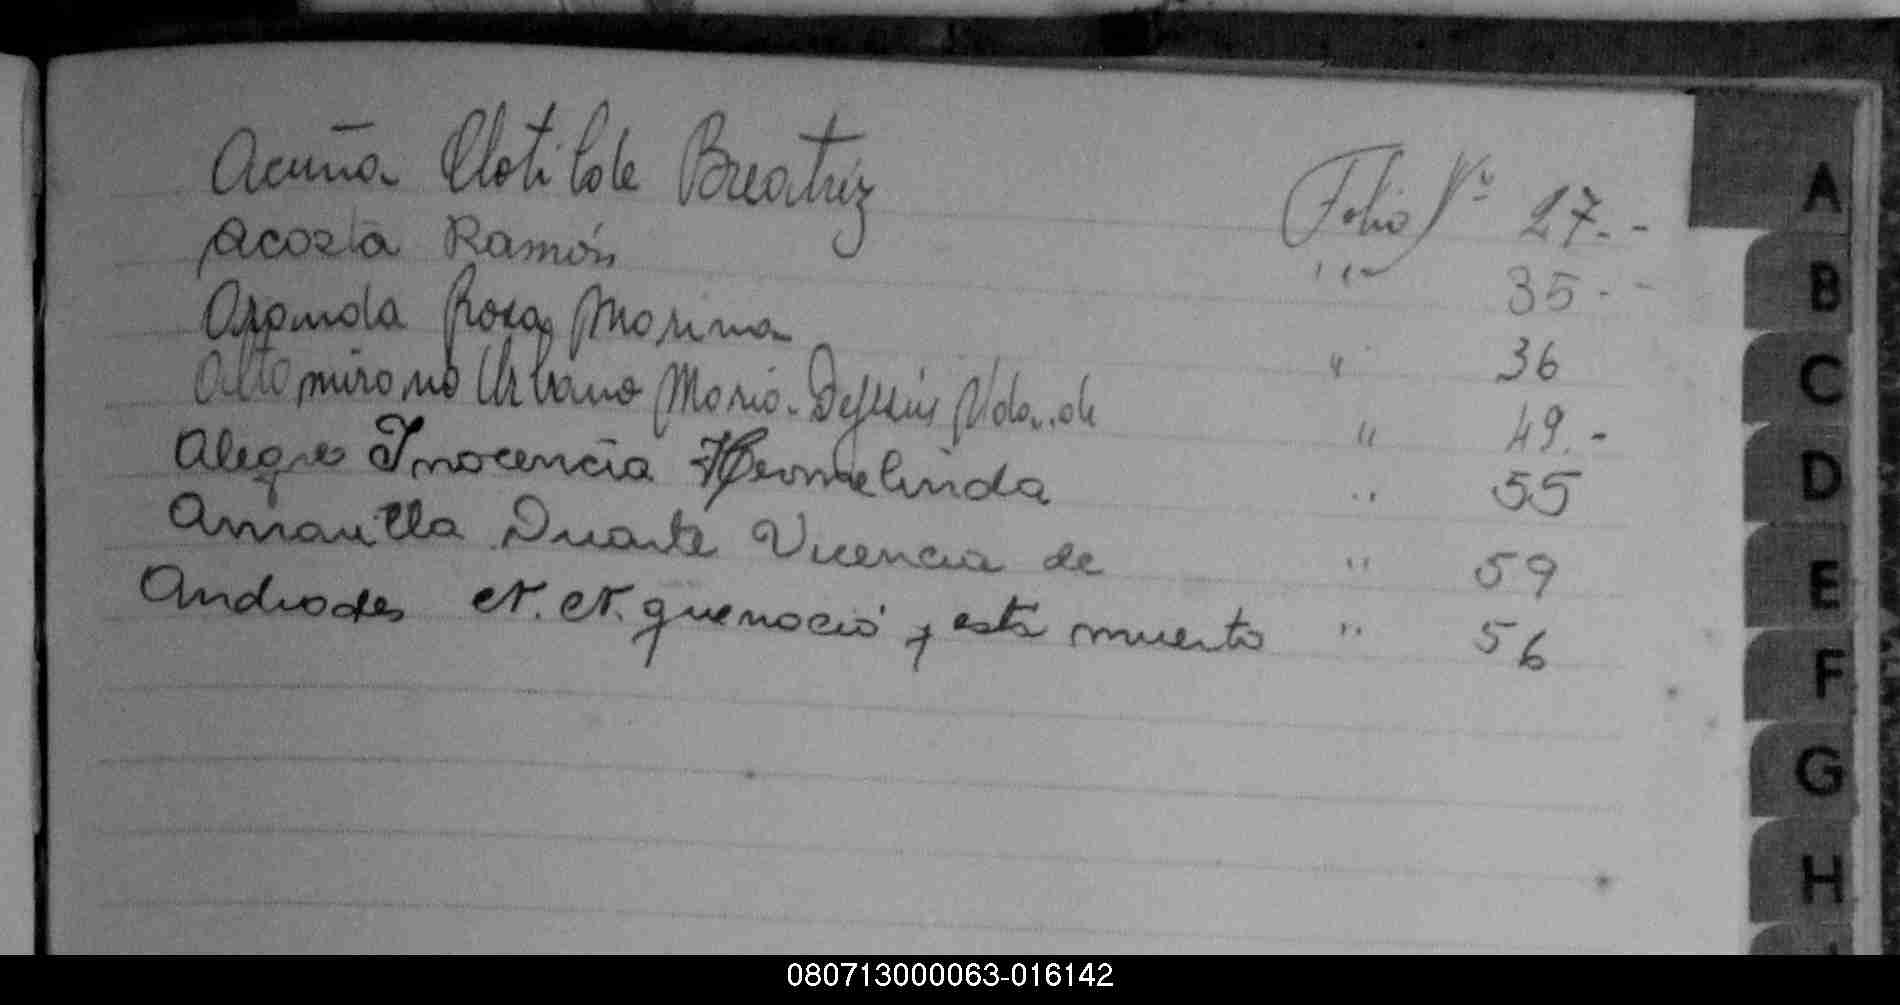 Acuña Clotilde Breatriz Folio Nº 27.--
Acosta Ramón " 35.--
Aranda Rosa Marina " 36
Altamirano Urbano Maria. DeJesús Vda..de " 49.-
Alegre Inocencia Hermelinda " 55
Amarilla Duarte Vicencia de " 59
Andrades N. N. que nació y está muerto " 56
A
B
C
D
E
F
G
H
080713000063-016142